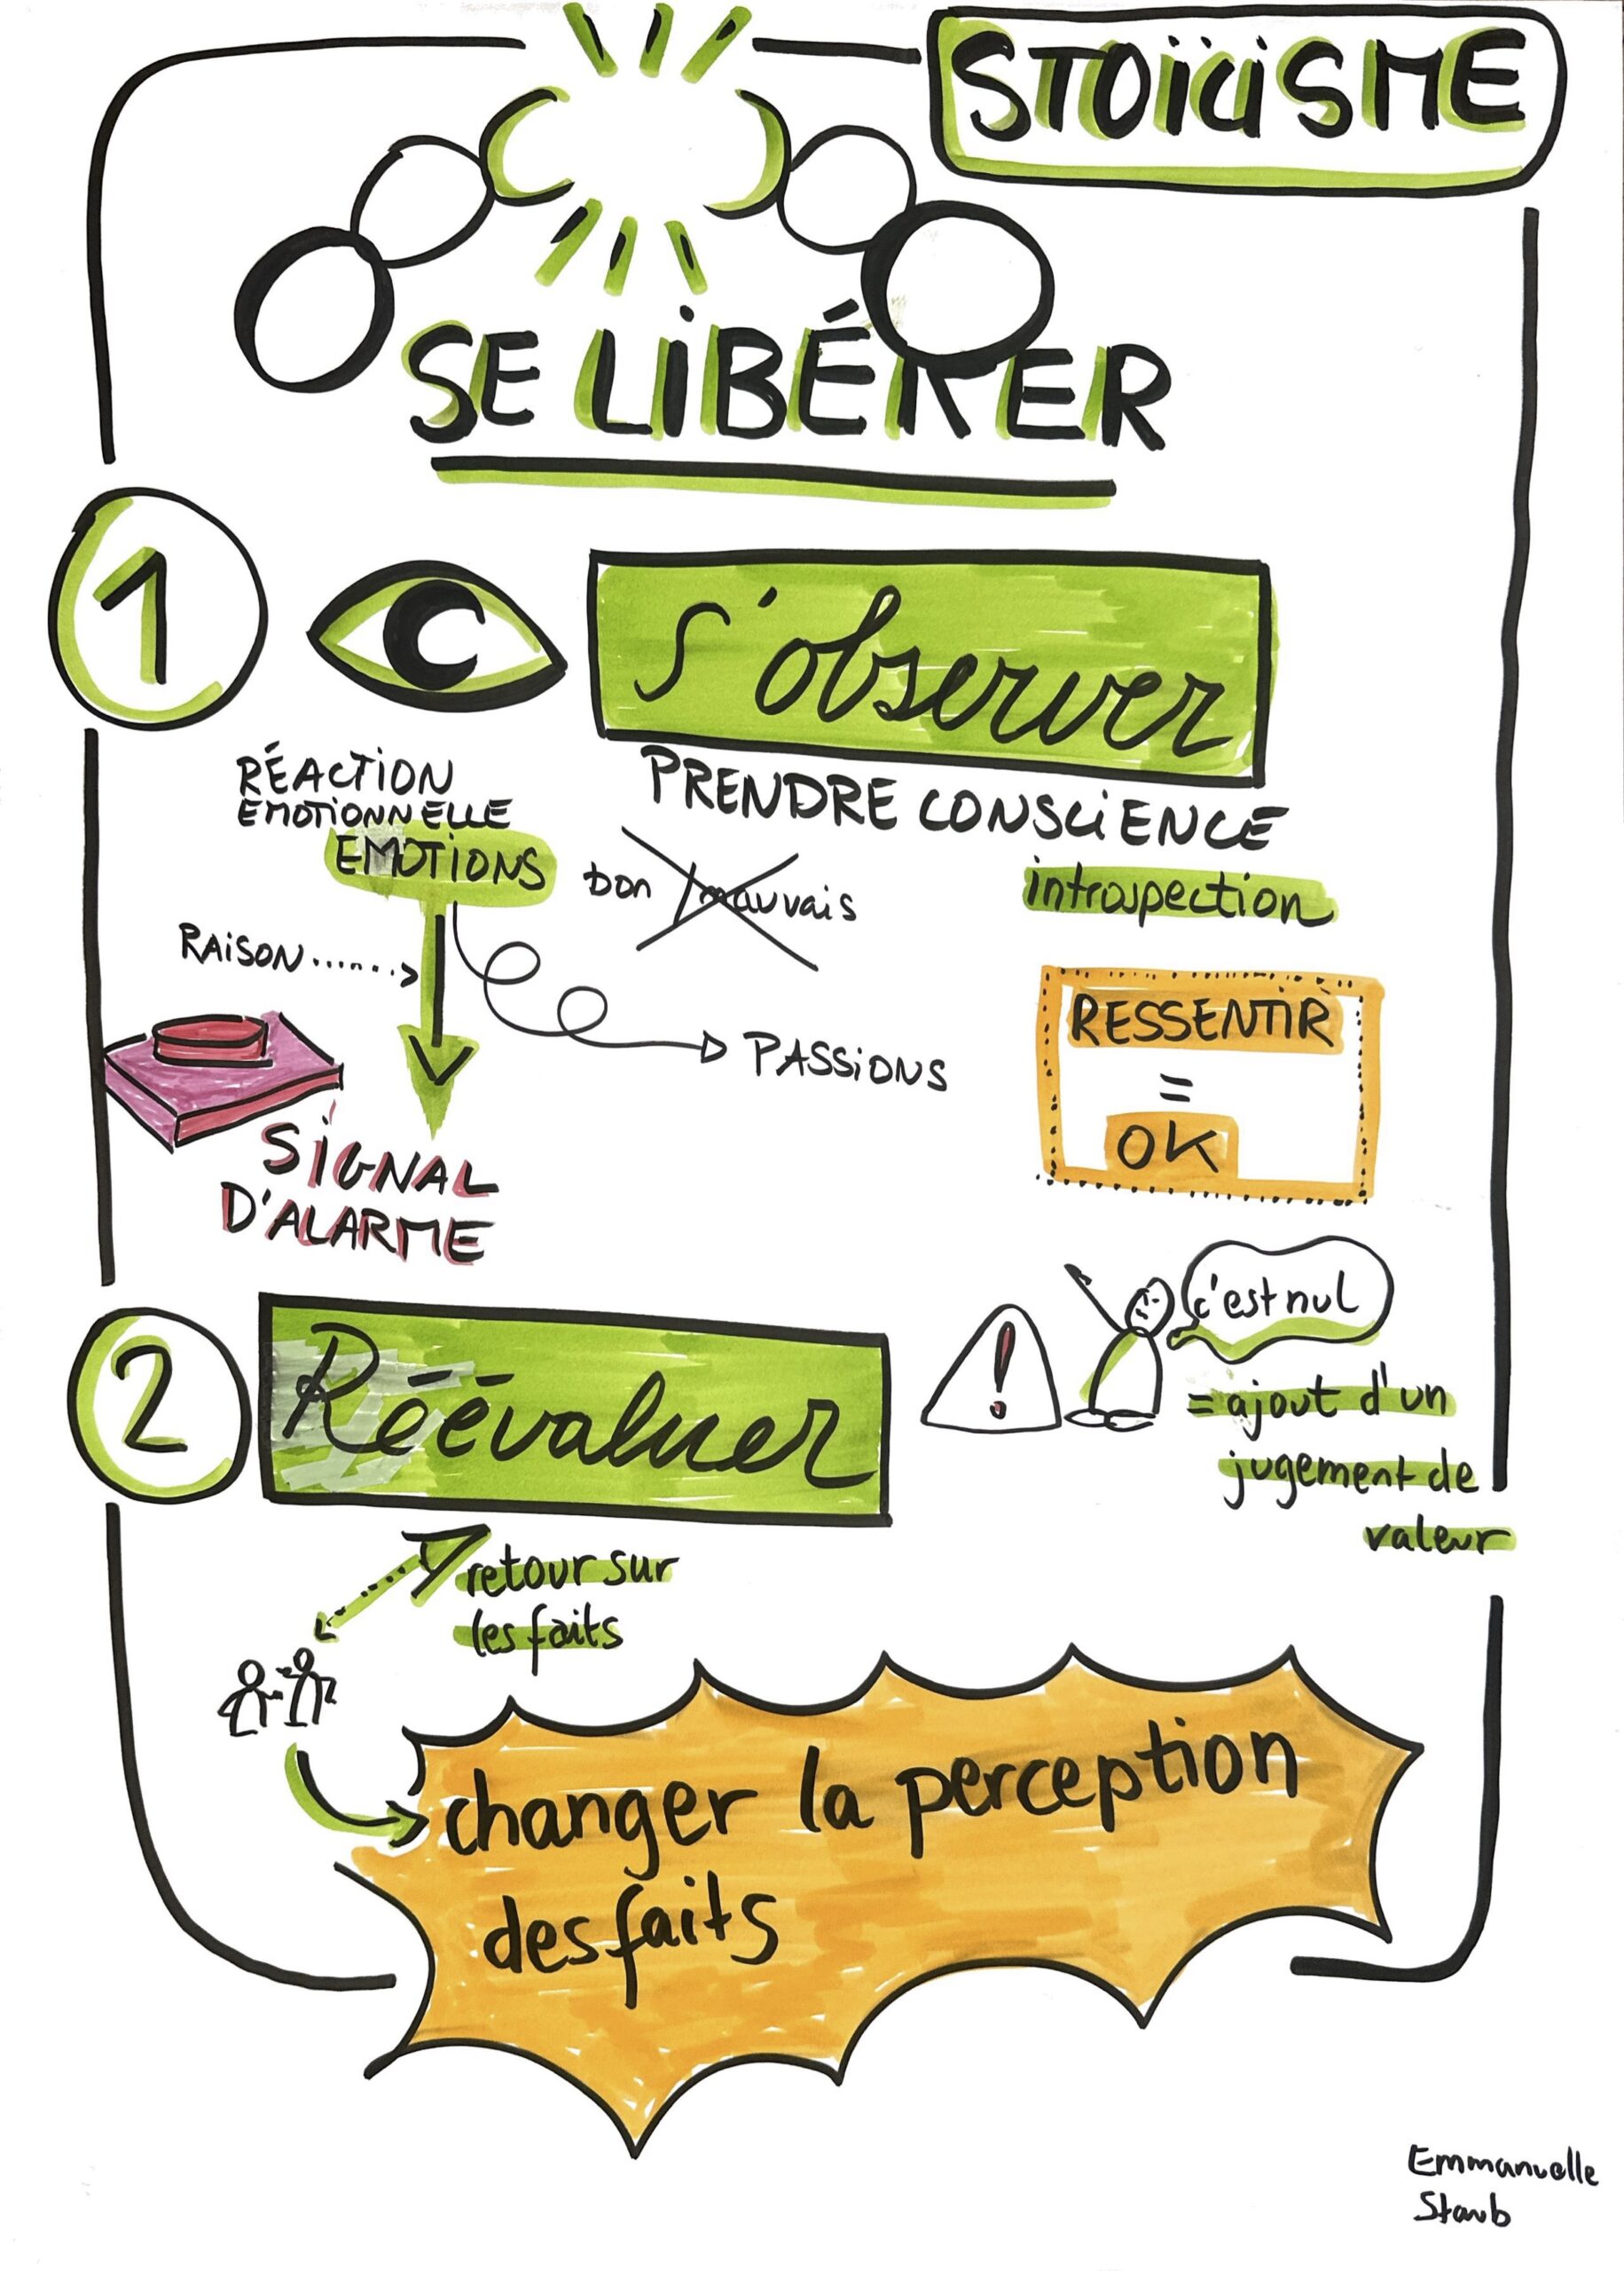 STOÏCISME
SE LIBÉRER
1
S'observer
PRENDRE CONSCIENCE
introspection
RÉACTION
EMOTIONNELLE
EMOTIONS
bon / mauvais
RAISON
PASSIONS
SIGNAL
D'ALARME
RESSENTIR
=
OK
2
Réévaluer
!
c'est nul
= ajout d'un
jugement de
valeur
retour sur
les faits
changer la perception
des faits
Emmanuelle
Staub